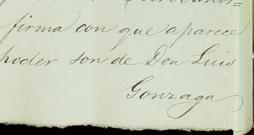 firma con que aparece
poder son de Don Luis
Gonzaga